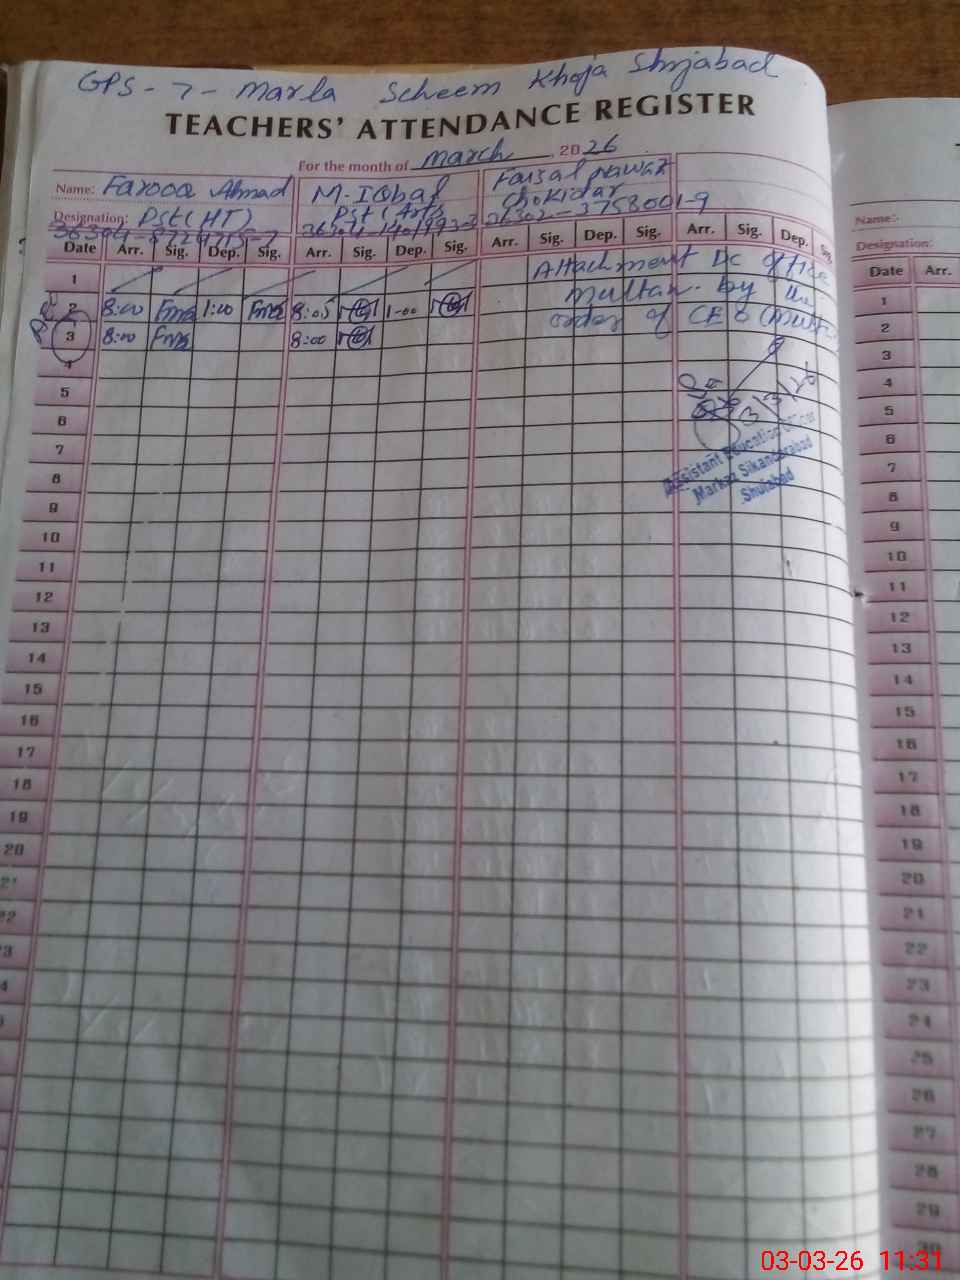 GPS - 7 - Marla Scheem Khoja Shujabad
TEACHERS' ATTENDANCE REGISTER
For the month of March, 2026
Name: Farooq Ahmad M. IQbal Faisal Nawaz
Designation: Pst (HT) Pst (Arts) Chokidar
36302-3758001-9
Date Arr. Sig. Dep. Sig. Arr. Sig. Dep. Sig. Arr. Sig. Dep. Sig. Arr. Sig. Dep. Sig.
1 Attachment DC office
2 8:00 1:00 8:05 1-00 Multan. by the
3 8:00 8:00 order of CEO (Multan
4
5 3/3/26
6 Assistant Education Officer
7 Markaz Sikandarabad
8 Shujabad
9
10
11
12
13
14
15
16
17
18
19
20
21
22
23
Name:
Designation:
Date Arr.
1
2
3
4
5
6
7
8
9
10
11
12
13
14
15
16
17
18
19
20
21
22
23
24
25
26
27
28
29
30
03-03-26 11:31